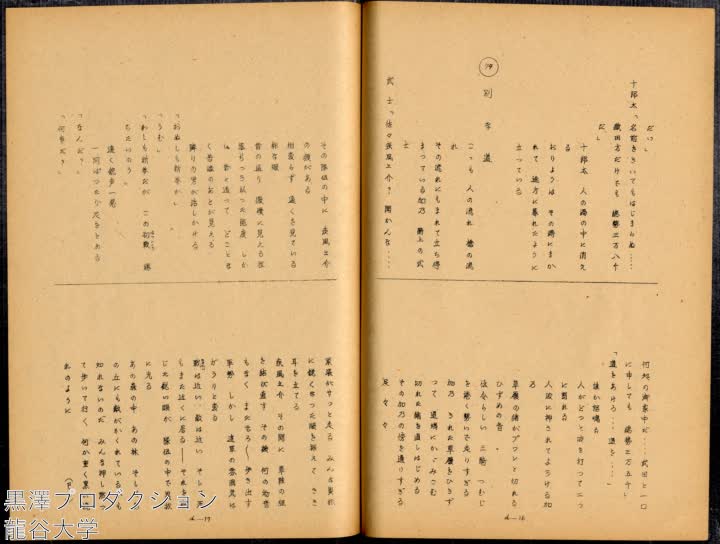 だい」
十郎太「名前をきいてもはじまらぬ……
織田方だけでも 總勢三万八千
だ」
十郎太 人の渦の中に消え
る
おりようは その渦にまか
れて 途方に暮れたように
立っている
79 別な道
こゝも 人の流れ 槍の流
れ
その流れにもまれて立ち停
まっている加乃 路上の武
武士「佐々疾風之介? 聞かんな……
何処の御家中だ……武田と一口
に申しても 總勢三万五千」
「道をあけろ……道を……」
誰か怒鳴る
人がどっと波を打ってこっ
に割れる
人波に押されてよろける加
乃
草履の緒がプツンと切れる
ひずめの音
伝令らしい 三騎 つむじ
を捲く勢いで走りすぎる
加乃 きれた草履をひきず
って 道端にかゞみこむ
切れた緒を直しはじめる
その加乃の傍を通りすぎる
足 々 々
4—16
その隊伍の中に 疾風之介
の顔がある
相変らず 遠くを見ている
様な眼
昔の通り 傲慢に見える程
落ちつき払った態度 しか
し 昔と違って どことな
く苦渋のあとが見える
隣りの男が話しかける
「おぬしも新参か」
「うむ」
「わしも新参だが この初戦 勝
ちたいのう」
遠く銃声一発
一同はったり足をとめる
「なんだ?」
「何事だ?」
緊張がサッと走る みんな異様
に鋭くなった眼を据えて きき
耳を立てる
疾風之介 その間に 草鞋の紐
を結び直す その後 何の物音
もなく またぞろ〳〵歩き出す
軍勢 しかし 進軍の雰囲気は
がらりと変る
敵は近い 敵は近い そし死
もまた近くに居る——それを
じた鋭い眼が 隊伍の中で
に光る
あの森の中 あの林 そし
の丘にも敵がかくれているかも
知れないのだ みんな押し黙
って歩いて行く 何か重く黒い
れのように
(F・
4—17
黒澤プロダクション
龍谷大学